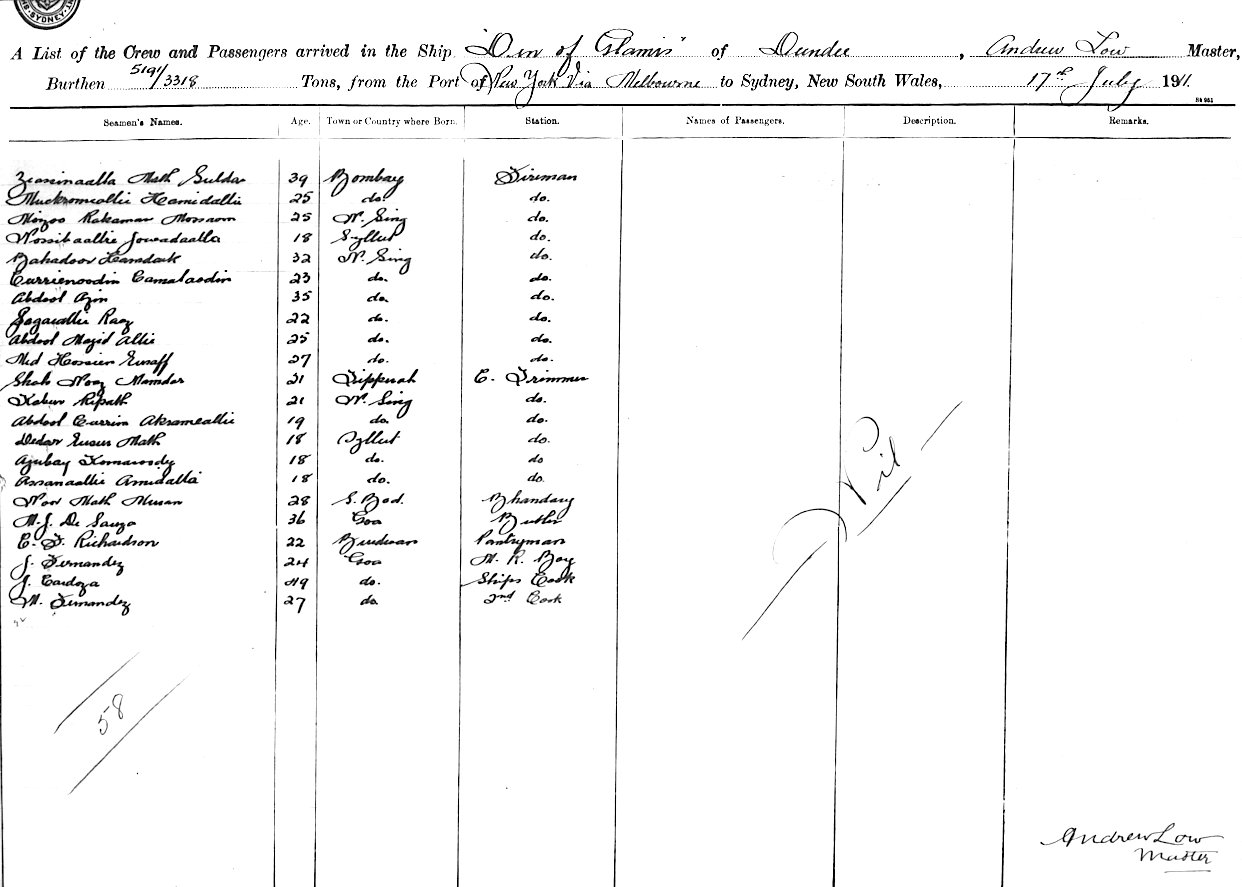 SYDNEY
A List of the Crew and Passengers arrived in the Ship "Den of Glamis" of Dundee, Andrew Low Master,
Burthen 5191/3318 Tons, from the Port of New York Via Melbourne to Sydney, New South Wales, 17th July 1911.
St 951
Seamen's Names. Age. Town or Country where Born. Station. Names of Passengers. Description. Remarks.
Math 39 Bombay Fireman
Hamidallie 25 do. do.
Rahaman 25 N. Sing do.
18 Syllut do.
Bahadoor 32 N. Sing do.
Currienoodin Camalaodin 23 do. do.
Abdool Azim 35 do. do.
22 do. do.
Abdool Mazid Allie 25 do. do.
Md Hossien Eusaff 27 do. do.
Shah Noaz Mamdar 31 Tipperah C. Trimmer
Ripath 21 N. Sing do.
Abdool Currim Akrameallie 19 do. do.
Dedar Eusus Math 18 Syllut do.
Azubay 18 do. do
Assanaallie Amidalla 18 do. do.
Noor Math Musan 28 S. Bad. Bhandary
M. J. De Sauza 36 Goa Butler
E. F. Richardson 22 Burdwan Pantryman
J. Fernandez 24 Goa M. R. Boy
J. Cardoza 49 do. Ships Cook
M. Fernandez 27 do. 2nd Cook
Nil
58
Andrew Low
Master